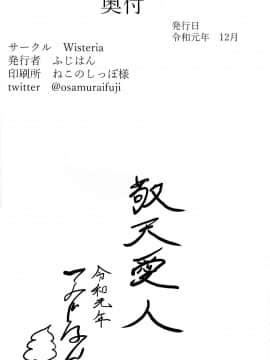 奥付
発行日
令和元年 12月
サークル Wisteria
発行者 ふじはん
印刷所 ねこのしっぽ様
twitter @osamuraifuji
敬天愛人
令和元年
ふじはん